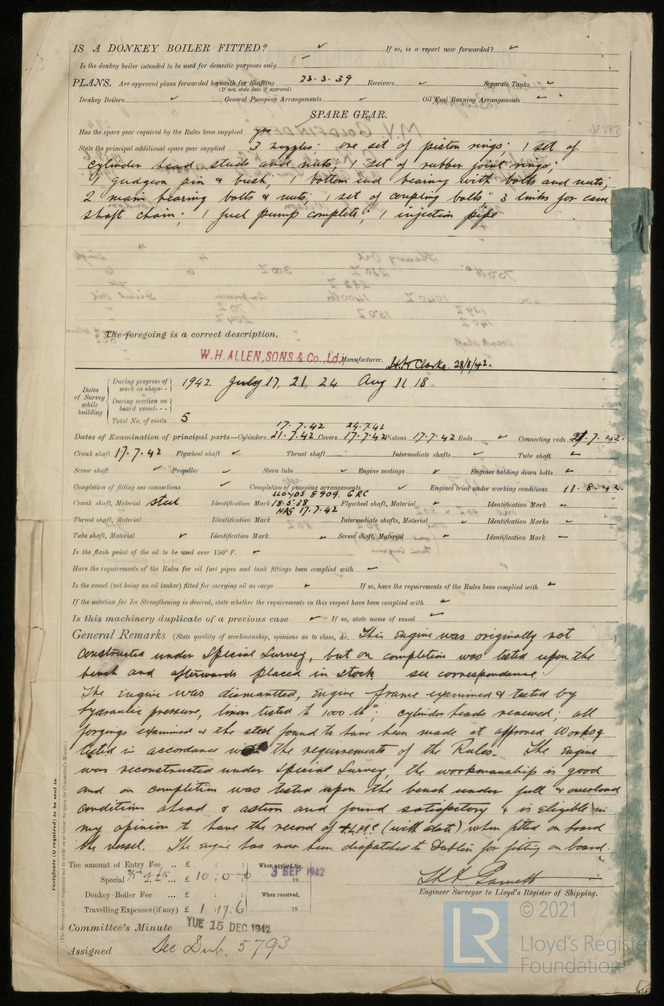 IS A DONKEY BOILER FITTED? ✓ If so, is a report now forwarded? ✓
Is the donkey boiler intended to be used for domestic purposes only
PLANS. Are approved plans forwarded herewith for Shafting 23-3-39 Receivers ✓ Separate Tanks ✓
(If not, state date of approval)
Donkey Boilers ✓ General Pumping Arrangements ✓ Oil Fuel Burning Arrangements ✓
SPARE GEAR.
Has the spare gear required by the Rules been supplied yes
State the principal additional spare gear supplied 3 nozzles; one set of piston rings; 1 set of
cylinder head studs and nuts; 1 set of rubber joint rings;
1 gudgeon pin & bush, 1 bottom end bearing with bolts and nuts;
2 main bearing bolts & nuts, 1 set of coupling bolts; 3 links for cam
shaft chain; 1 fuel pump complete; 1 injection pipe
The foregoing is a correct description.
W.H. ALLEN, SONS & Co., Ld., Manufacturer. Clarke. 28/8/42.
Dates of Survey while building
During progress of work in shops-- 1942 July 17, 21, 24 Aug 11 18
During erection on board vessel---
Total No. of visits 5
17.7.42 24.7.42
Dates of Examination of principal parts—Cylinders 21.7.42 Covers 17.7.42 Pistons 17.7.42 Rods ✓ Connecting rods 21.7.42
Crank shaft 17.7.42 Flywheel shaft ✓ Thrust shaft Intermediate shafts ✓ Tube shaft ✓
Screw shaft ✓ Propeller ✓ Stern tube ✓ Engine seatings ✓ Engines holding down bolts ✓
Completion of fitting sea connections ✓ Completion of pumping arrangements ✓ Engines tried under working conditions 11-8-42
LLOYDS 8909. GRC
Crank shaft, Material steel Identification Mark 18-5-38 Flywheel shaft, Material ✓ Identification Mark ✓
HAG 17.7.42
Thrust shaft, Material Identification Mark Intermediate shafts, Material ✓ Identification Marks ✓
Tube shaft, Material ✓ Identification Mark ✓ Screw shaft, Material ✓ Identification Mark ✓
Is the flash point of the oil to be used over 150° F. ✓
Have the requirements of the Rules for oil fuel pipes and tank fittings been complied with ✓
Is the vessel (not being an oil tanker) fitted for carrying oil as cargo ✓ If so, have the requirements of the Rules been complied with ✓
If the notation for Ice Strengthening is desired, state whether the requirements in this respect have been complied with ✓
Is this machinery duplicate of a previous case ✓ If so, state name of vessel ✓
General Remarks (State quality of workmanship, opinions as to class, &c. This Engine was originally not
constructed under Special Survey, but on completion was tested upon the
bench and afterwards placed in stock see correspondence
The Engine was dismantled, Engine frame examined & tested by
hydraulic pressure, liners tested to 1000 lb"; cylinder heads renewed; all
forgings examined & the steel found to have been made at approved Works &
tested in accordance with the requirements of the Rules. The Engine
was reconstructed under Special Survey, the workmanship is good
and on completion was tested upon the bench under full & overload
conditions ahead & astern and found satisfactory & is eligible in
my opinion to have the record of + L.M.C. (with date) when fitted on board
the vessel. The engine has now been dispatched to Dublin for fitting on board.
The amount of Entry Fee ... £ : : When applied for,
Special £ 10 : 0 : 0 3 SEP 1942
Donkey Boiler Fee ... £ : : When received,
Travelling Expenses (if any) £ 1 : 17 : 6 19
Engineer Surveyor to Lloyd's Register of Shipping.
Committee's Minute TUE 15 DEC 1942
Assigned See Dub. 5793
Certificate (if required) to be sent to
(The Surveyors are requested not to write on or below the space for Committee's Minute.)
© 2021
LR
Lloyd's Register
Foundation